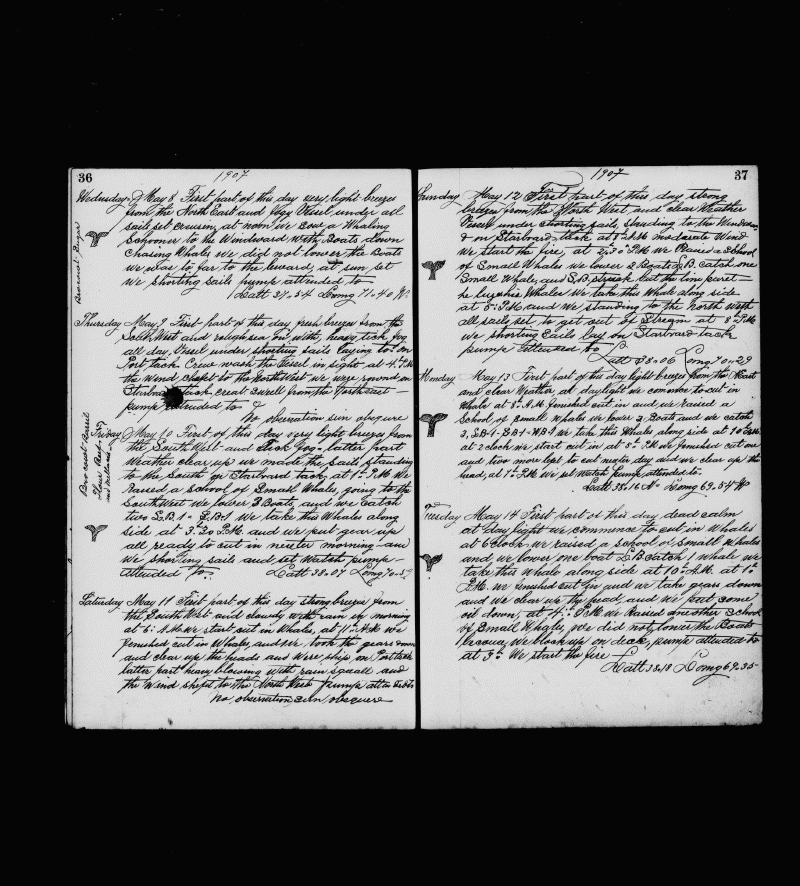 36
1907
Wednesday May 8 First part of this day very light breeze
from the North East and fogy Vesel under all
sail set cruisin, at noon we saw a Whaling
Schooner to the Windward with Boats down
Chasing Whales we did not lower the Boats
we was to far to the leward, at sun set
we shorting sails pump attended to
Latt 37.54 Long 71.40 W.
Thursday May 9 First part of this day fresh breeze from the
South West and rough sea on with, heavy tick fog
all day, Vesel under shorting sails laying to on
Port tack Crew wash the Vesel in sight at 4. P.M
the Wind shefet to the North West we were round on
Starboard tack, great Swell from the North East
pump attended to
No obsrvation sun obsqure
Friday May 10 First of this day very light breeze from
the South West and Tick fog latter part
Weather clear up we made the sails standing
to the South on Starboard tack, at 1. P.M. we
Raised a School of Small Whales, going to the
South West we lowers 3 Boats, and we catch
two L.B.1 S.B.1 we take this Whales along
side at 3.30 P.M. and we put gear up
all ready to cut in nexter morning and
we shorting sails and set Watch pump
attended to.
Latt 38-07 Long 70-59
Saturday May 11 First part of this day strong breeze from
the South West and cloudy with rain in morning
at 5. A.M. we start cut in Whales, at 11. A.M. we
fenished cut in Whales, and we took the gears down
and clear up the heads and Were ship on Port tack
latter part heavy blowing with rain squall and
the Wind shefet to the North West pump attended to
No observation sun obsqure
Brocoust Bager
Brocoust Barrel
Flour Beef
and
37
1907
Sunday May 12 First part of this day strong
breeze from the North West and clear Weather
Vesel under shorting sails, standing to the Windward
& on Starbord tack at 1. P.M. moderate Wind
we start the fire, at 2.30 P.M. we Raise a School
of Small Whales we lower 2 Boats L.B. catch one
Small Whale, and S.B. struck but the iron
Whales we take this Whale along side
at 5. P.M. and we standing to the North with
all sails set to get out of Stream at 8. P.M.
we shorting Sails lay on Starboard tack
pump attended to
Latt 38-06 Long 70-29
Monday May 13 First part of this day light breeze from the
and clear Weather, at daylight we comence to cut in
Whale at 8. A.M. fenished cut in and we raised a
School of small Whales we lower 3 Boats and we catch
3, S.B-1. L.B-1 W.B-1 we take this Whales along side at 10
at 2 clock we start cut in at 5. P.M. we fenished cut one
and two more left to cut nexter day and we clear up the
head, at 7. P.M. we set Watch pump attended to
Latt 38.16 N Long 69.54 W
Tuesday May 14 First part of this day dead calm
at day light we commence to cut in Whales
at 6 Clock we raised a School of small Whales
and we lower one boat L.B. Catch 1 whale we
take this Whale along side at 10. A.M. at 1.
P.M. we fenished cut in and we take gears down
and we clear up the head, and we put some
oil down, at 4. P.M. we Raised another School
of Small Whale, we did not, lower the Boats
becaus we block up on deck, pump attended to
at 5. We start the fire
Latt 38.18 Long 69.35